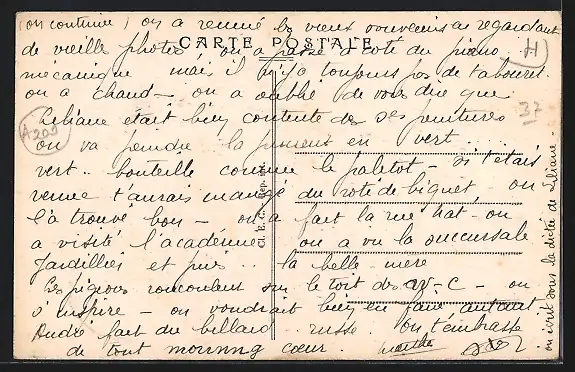 (on continue) on a remué les vieux souvenirs en regardant
de vieille photos on a passé à coté du piano
CARTE POSTALE
mecanique mais il n'y a toujours pas de tabouret.
on a chaud - on a oublié de vous dire que
Liliane était bien contente de ses peintures
on va peindre la en vert...
vert.. bouteille comme le paletot - si t'étais
venue t'aurais mangé du roté de biquet, on
l'a trouvé bon - on a fait la - on
a visité l'academie on a vu la succursale
Jardillier et puis.. la belle-mere
Les pigeons roucoulent sur le toit des W-C - on
s'inspire - on voudrait bien en faire autant
André fait du billard russe. on t'embrasse
de tout mourning coeur.
H
37
A209
on écrit sous la dictée de Liliane -